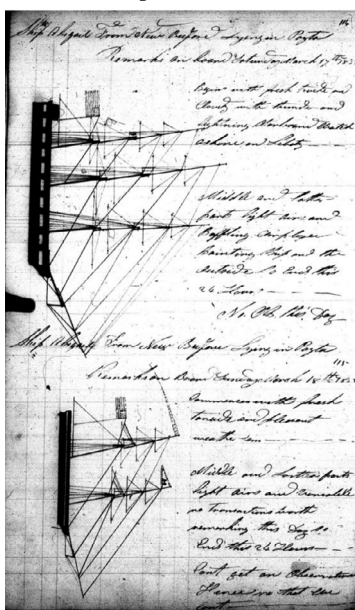 Ship Abigail From New Bedford Lying in Payta
Remarks on board Saturday March 17th
Begins with fresh trades and
Cloudy with thunder and
lightning Starboard Watch
ashore on Liberty
Middle and latter
parts light airs and
Baffling employed
painting Ship on the
outside So Ends this
24 Hours
No Obs this Day
Ship Abigail From New Bedford Lying in Payta
Remarks on Board Sunday March 18th
Commences with fresh
trades and pleasant
weather
Middle and latter parts
light airs and variable
no transactions worth
remarking this Day So
Ends this 24 Hours
Cant get an Observation